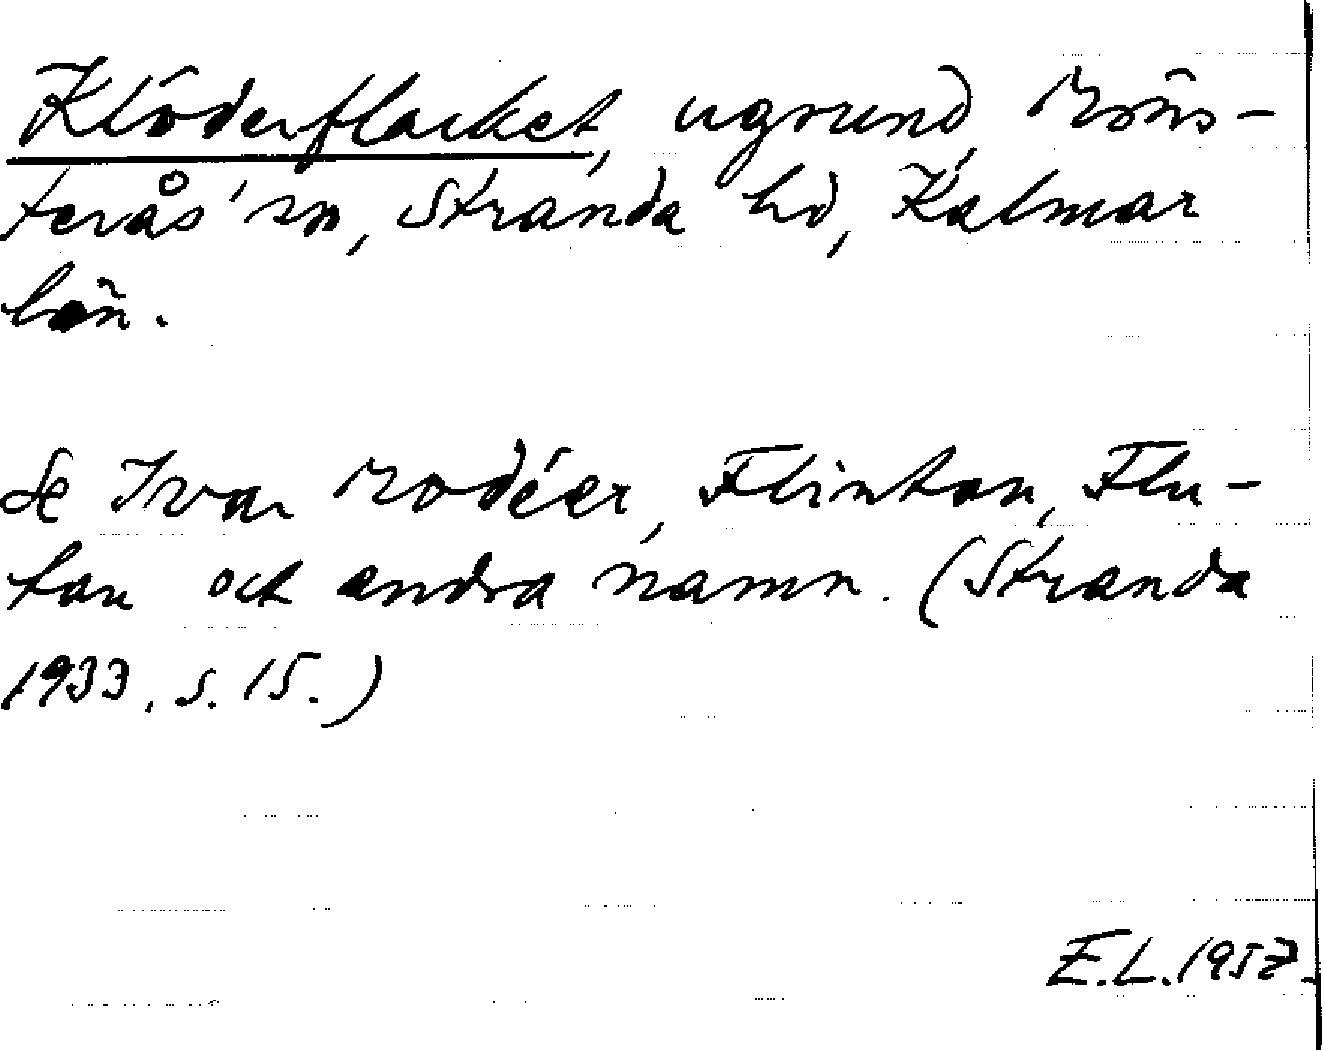 Klöderflacket, ugrund, Möns-
terås sn, Stranda hd, Kalmar
län.
Se Ivar Modéer, Flintan, Flu-
tan och andra namn. (Stranda
1933, s. 15.)
E.L. 1957.